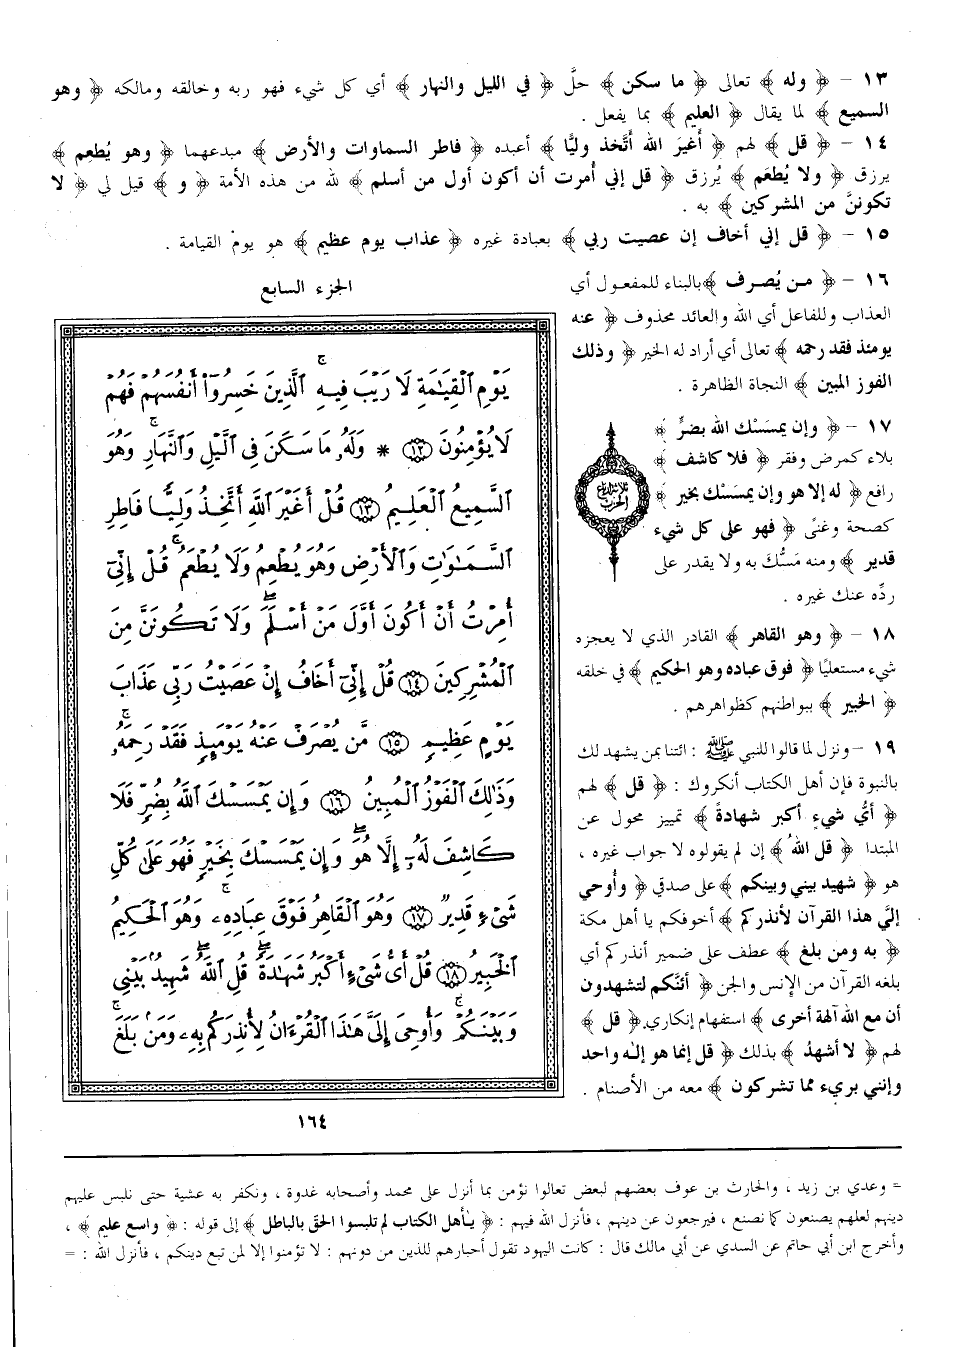 ١٣ - ﴿ وله ﴾ تعالى ﴿ ما سكن ﴾ حلَّ ﴿ في الليل والنهار ﴾ أي كل شيء فهو ربه وخالقه ومالكه ﴿ وهو
السميع ﴾ لما يقال ﴿ العليم ﴾ بما يفعل .
١٤ - ﴿ قل ﴾ لهم ﴿ أَغيرَ الله أتَّخذ وليًّا ﴾ أعبده ﴿ فاطر السماوات والأرض ﴾ مبدعهما ﴿ وهو يُطعم ﴾
يرزق ﴿ ولا يُطعَم ﴾ يُرزق ﴿ قل إني أُمرت أن أكون أول من أسلم ﴾ لله من هذه الأمة ﴿ و ﴾ قيل لي ﴿ لا
تكوننَّ من المشركين ﴾ به .
١٥ - ﴿ قل إني أخاف إن عصيت ربي ﴾ بعبادة غيره ﴿ عذاب يوم عظيم ﴾ هو يوم القيامة .
١٦ - ﴿ من يُصرف ﴾ بالبناء للمفعول أي
العذاب وللفاعل أي الله والعائد محذوف ﴿ عنه
يومئذ فقد رحمه ﴾ تعالى أي أراد له الخير ﴿ وذلك
الفوز المبين ﴾ النجاة الظاهرة .
١٧ - ﴿ وإن يمسَسْك الله بضرٍّ ﴾
بلاء كمرض وفقر ﴿ فلا كاشف ﴾
رافع ﴿ له إلا هو وإن يمسَسْك بخير ﴾
كصحة وغنًى ﴿ فهو على كل شيء
قدير ﴾ ومنه مَسُّك به ولا يقدر على
ردِّه عنك غيره .
١٨ - ﴿ وهو القاهر ﴾ القادر الذي لا يعجزه
شيء مستعليًا ﴿ فوق عباده وهو الحكيم ﴾ في خلقه
﴿ الخبير ﴾ ببواطنهم كظواهرهم .
١٩ - ونزل لما قالوا للنبي ﷺ : ائتنا بمن يشهد لك
بالنبوة فإن أهل الكتاب أنكروك : ﴿ قل ﴾ لهم
﴿ أيُّ شيءٍ أكبر شهادةً ﴾ تمييز محول عن
المبتدا ﴿ قل اللهُ ﴾ إن لم يقولوه لا جواب غيره ،
هو ﴿ شهيد بيني وبينكم ﴾ على صدقي ﴿ وأُوحي
إليَّ هذا القرآن لأنذركم ﴾ أخوفكم يا أهل مكة
﴿ به ومن بلغ ﴾ عطف على ضمير أنذركم أي
بلغه القرآن من الإنس والجن ﴿ أئنَّكم لتشهدون
أن مع الله آلهة أخرى ﴾ استفهام إنكاري ﴿ قل ﴾
لهم ﴿ لا أشهدُ ﴾ بذلك ﴿ قل إنما هو إله واحد
وإنني بريء مما تشركون ﴾ معه من الأصنام .
الجزء السابع
يَوْمِ ٱلْقِيَٰمَةِ لَا رَيْبَ فِيهِ ۚ ٱلَّذِينَ خَسِرُوٓا۟ أَنفُسَهُمْ فَهُمْ
لَا يُؤْمِنُونَ ١٢ * وَلَهُۥ مَا سَكَنَ فِى ٱلَّيْلِ وَٱلنَّهَارِ ۚ وَهُوَ
ٱلسَّمِيعُ ٱلْعَلِيمُ ١٣ قُلْ أَغَيْرَ ٱللَّهِ أَتَّخِذُ وَلِيًّا فَاطِرِ
ٱلسَّمَٰوَٰتِ وَٱلْأَرْضِ وَهُوَ يُطْعِمُ وَلَا يُطْعَمُ ۗ قُلْ إِنِّىٓ
أُمِرْتُ أَنْ أَكُونَ أَوَّلَ مَنْ أَسْلَمَ ۖ وَلَا تَكُونَنَّ مِنَ
ٱلْمُشْرِكِينَ ١٤ قُلْ إِنِّىٓ أَخَافُ إِنْ عَصَيْتُ رَبِّى عَذَابَ
يَوْمٍ عَظِيمٍ ١٥ مَّن يُصْرَفْ عَنْهُ يَوْمَئِذٍ فَقَدْ رَحِمَهُۥ ۚ
وَذَٰلِكَ ٱلْفَوْزُ ٱلْمُبِينُ ١٦ وَإِن يَمْسَسْكَ ٱللَّهُ بِضُرٍّ فَلَا
كَاشِفَ لَهُۥٓ إِلَّا هُوَ ۖ وَإِن يَمْسَسْكَ بِخَيْرٍ فَهُوَ عَلَىٰ كُلِّ
شَىْءٍ قَدِيرٌ ١٧ وَهُوَ ٱلْقَاهِرُ فَوْقَ عِبَادِهِۦ ۚ وَهُوَ ٱلْحَكِيمُ
ٱلْخَبِيرُ ١٨ قُلْ أَىُّ شَىْءٍ أَكْبَرُ شَهَٰدَةً ۖ قُلِ ٱللَّهُ ۖ شَهِيدٌۢ بَيْنِى
وَبَيْنَكُمْ ۚ وَأُوحِىَ إِلَىَّ هَٰذَا ٱلْقُرْءَانُ لِأُنذِرَكُم بِهِۦ وَمَنۢ بَلَغَ ۚ
ثلاثة أرباع
الحزب
١٦٤
= وعدي بن زيد ، والحارث بن عوف بعضهم لبعض تعالوا نؤمن بما أنزل على محمد وأصحابه غدوة ، ونكفر به عشية حتى نلبس عليهم
دينهم لعلهم يصنعون كما نصنع ، فيرجعون عن دينهم ، فأنزل الله فيهم : ﴿ يـأهل الكتاب لم تلبسوا الحق بالباطل ﴾ إلى قوله : ﴿ واسع عليم ﴾ ،
وأخرج ابن أبي حاتم عن السدي عن أبي مالك قال : كانت اليهود تقول أحبارهم للذين من دونهم : لا تؤمنوا إلا لمن تبع دينكم ، فأنزل الله : =